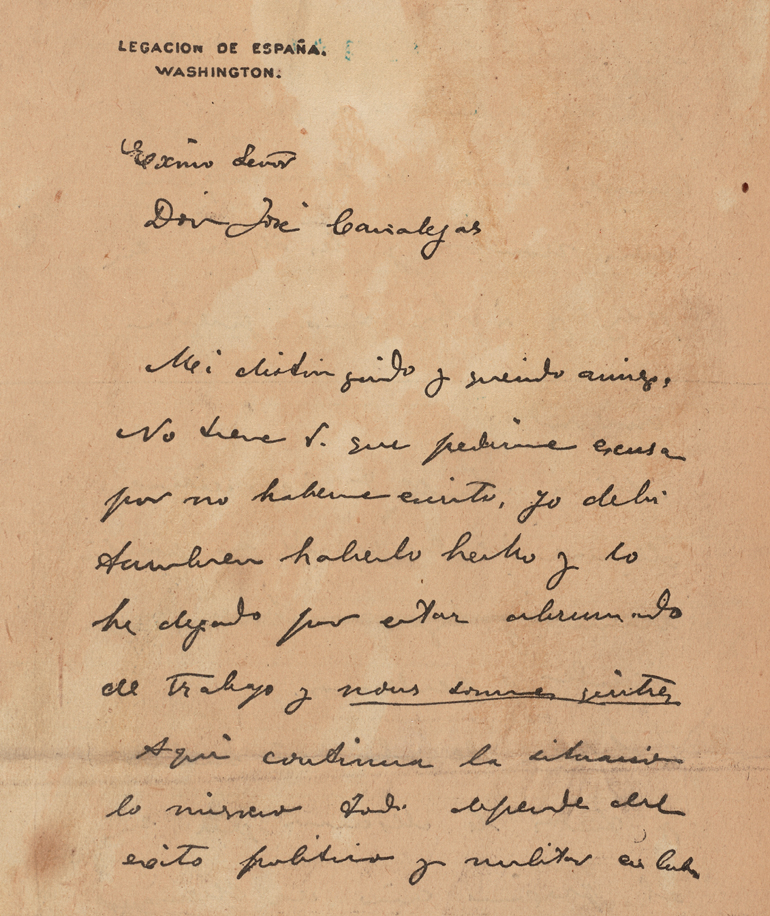 LEGACION DE ESPAÑA.
WASHINGTON.
Exmo Señor
Don José Canalejas
Mi distinguido y querido amigo,
No tiene V. que pedirme excusa
por no haberme escrito, yo debi
tambien haberlo hecho y lo
he dejado por estar abrumado
de trabajo y nous sommes quittes
Aqui continua la situacion
lo mismo Todo depende del
exito politico y militar en Cuba